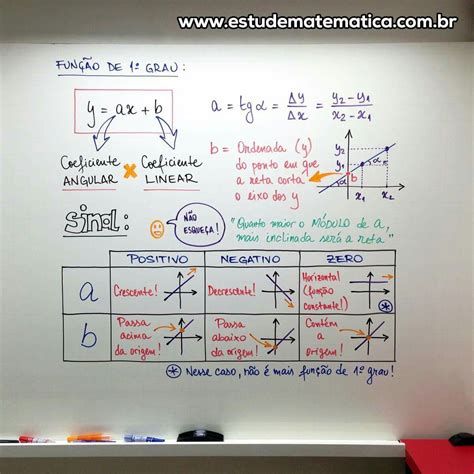 www.estudematematica.com.br
FUNÇÃO DE 1º GRAU:
y = ax + b
a = tg α = Δy/Δx = (y₂ - y₁)/(x₂ - x₁)
Coeficiente ANGULAR
×
Coeficiente LINEAR
b = Ordenada (y)
do ponto em que
a reta corta
o eixo dos y
y₂
y₁
b
α
α
x₁
x₂
Sinal:
NÃO
ESQUEÇA!
"Quanto maior o MÓDULO de a,
mais inclinada será a reta"
POSITIVO NEGATIVO ZERO
a
Crescente!
Decrescente!
Horizontal
(função
constante!)
*
b
Passa
acima
da origem!
Passa
abaixo
da origem!
Contém
a
origem!
* Nesse caso, não é mais função de 1º grau!